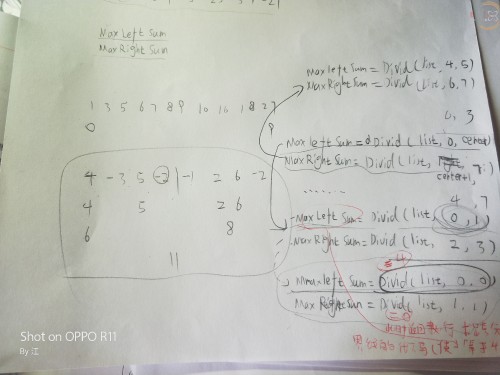 Max Left Sum
Max Right Sum
1 3 5 6 7 8 9 10 18 27
0 9
4 -3 5 -2 -1 2 6 -2
4 5 2 6
6 8
11
Max Left Sum = Divid (list, 4, 5)
Max Right Sum = Divid (list, 6, 7)
0, 3
Max Left Sum = Divid (list, 0, center)
Max Right Sum = Divid (list, center+1, 7)
.......
4, 7
Max Left Sum = Divid (list, 0, 1)
Max Right Sum = Divid (list, 2, 3)
= 4
Max Left Sum = Divid (list, 0, 0)
Max Right Sum = Divid (list, 1, 1)
Shot on OPPO R11
By 江